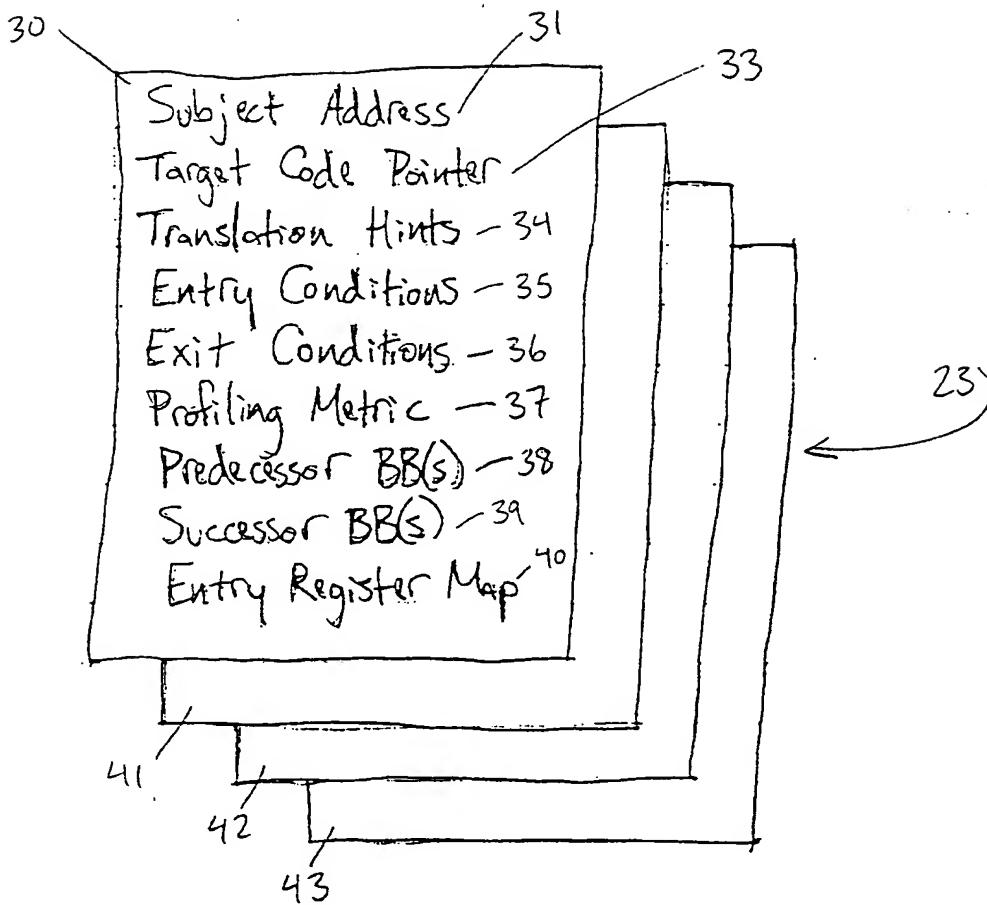 30
31
Subject Address
33
Target Code Pointer
Translation Hints - 34
Entry Conditions - 35
Exit Conditions - 36
Profiling Metric - 37
23
Predecessor BB(s) - 38
Successor BB(s) - 39
Entry Register Map 40
41
42
43